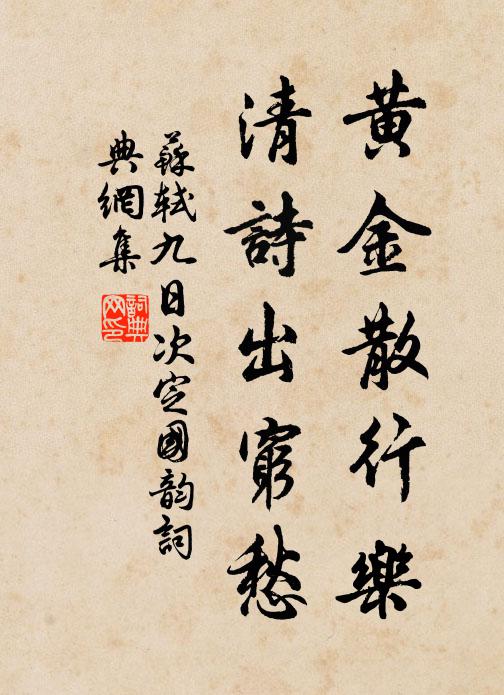 黄金散行樂
清詩出窮愁
蘇軾九日次定國韵詞
典網集
詞典
网印